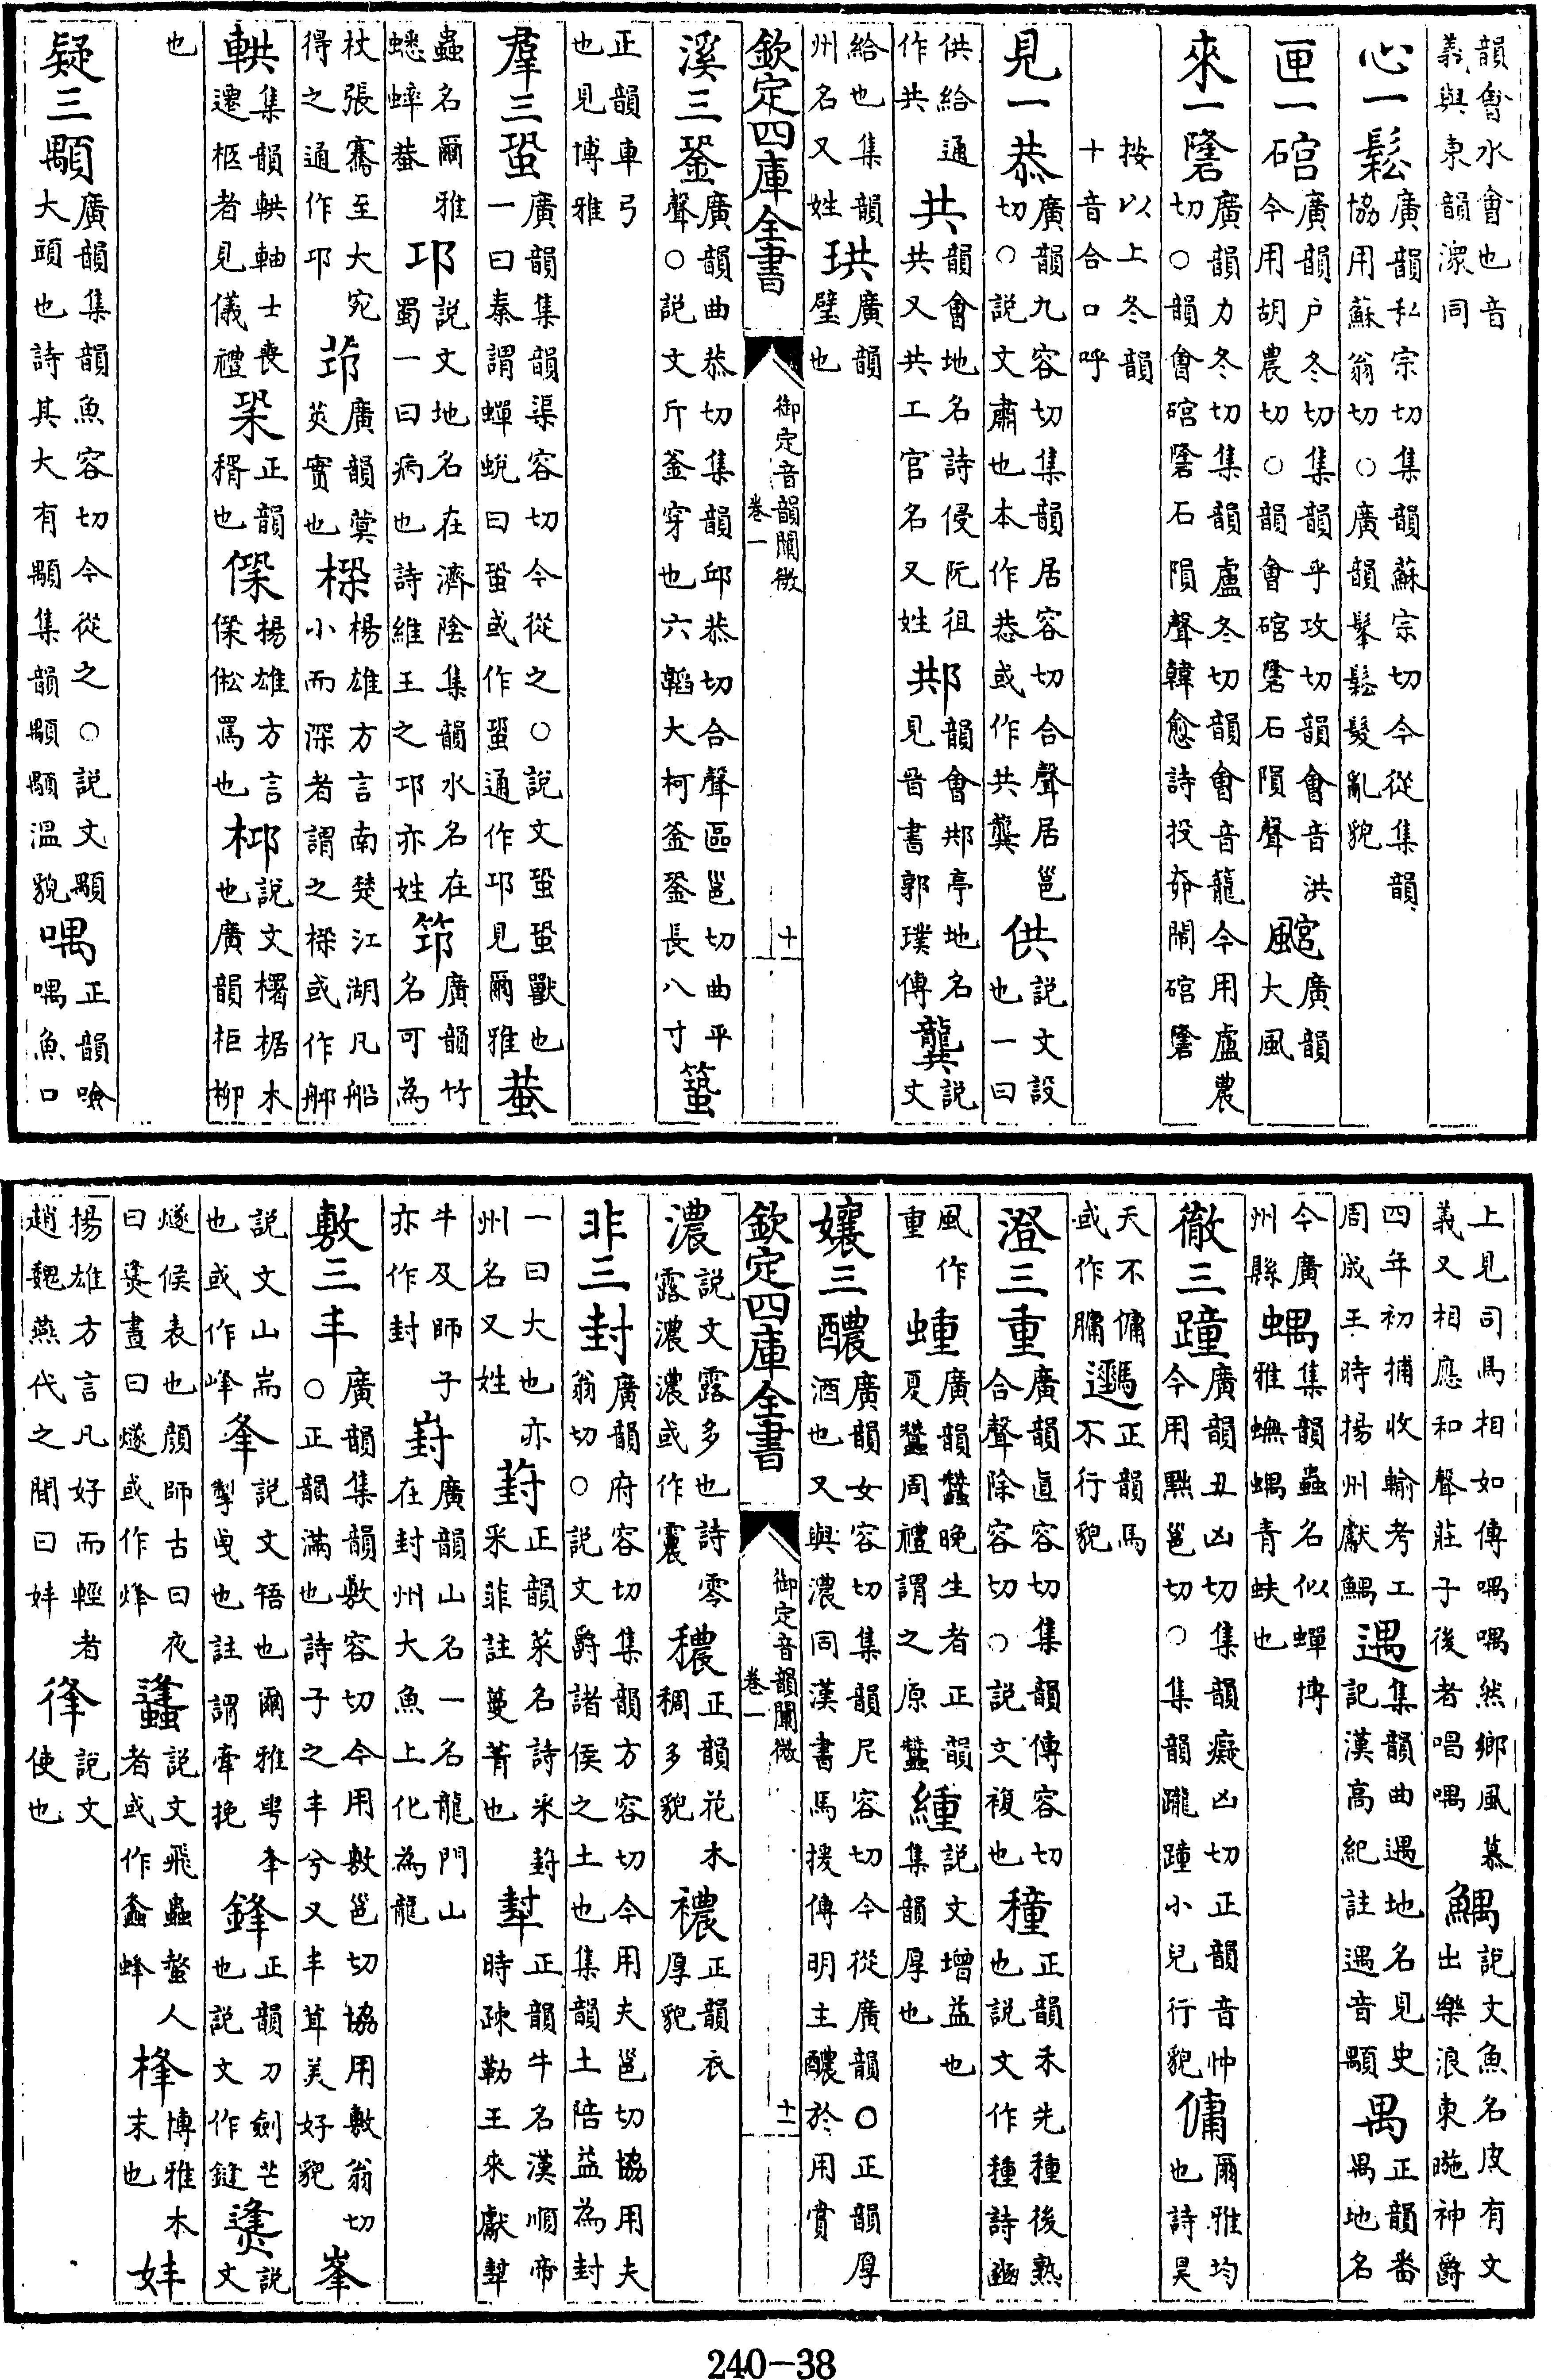 韻會水會也音義與東韻潀同
心一鬆廣韻私宗切集韻蘇宗切今從集韻協用蘇翁切○廣韻髼鬆髮亂貌
匣一䃔廣韻户冬切集韻乎攻切韻會音洪今用胡農切○韻會䃔䃧石隕聲 廣韻大風
來一䃧廣韻力冬切集韻盧冬切韻會音龍今用盧農切○韻會䃔䃧石隕聲韓愈詩投奅閙䃔䃧
按以上冬韻十音合口呼
見一恭廣韻九容切集韻居容切合聲居邕切○説文肅也本作㳟或作共龔供説文設也一曰
供給通作共共韻會地名詩侵阮徂共又共工官名又姓䢼韻會䢼亭地名見晉書郭璞傳龔説文
給也集韻州名又姓珙廣韻璧也
欽定四庫全書 御定音韻闡微 卷一 十
溪三銎廣韻曲恭切集韻邱恭切合聲區邕切曲平聲○説文斤釜穿也六韜大柯釜銎長八寸
正韻車弓也見博雅
羣三蛩廣韻集韻渠容切今從之○説文蛩蛩獸也一曰秦謂蟬蜕曰蛩或作蛩通作邛見爾雅蛬
蟲名爾雅蟋蟀蛬邛説文地名在濟陰集韻水名在蜀一曰病也詩維王之邛亦姓筇廣韻竹名可為
杖張騫至大宛得之通作邛䓖廣韻蓂莢實也 楊雄方言南楚江湖凡船小而深者謂之 或作
輁集韻輁軸士喪遷柩者見儀禮 正韻稰也 揚雄方言 倯罵也 説文欘椐木也廣韻柜柳
也
疑三顒廣韻集韻魚容切今從之○説文顒大頭也詩其大有顒集韻顒顒溫貌喁正韻噞喁魚口
上見司馬相如傳喁喁然鄉風慕義又相應和聲莊子後者唱喁鰅説文魚名皮有文出樂浪東暆神爵
四年初捕收輸考工周成王時揚州獻鰅遇集韻曲遇地名見史記漢高紀註遇音顒禺正韻番禺地名
今廣州縣蝺集韻蟲名似蟬博雅蟱蝺青蚨也
徹三蹱廣韻丑凶切集韻癡凶切正韻音忡今用黜邕切○集韻躘蹱小兒行貌傭爾雅均也詩昊
天不傭或作牅 正韻馬不行貌
澄三重廣韻直容切集韻傳容切合聲除容切○説文複也穜正韻禾先種後熟也説文作種詩豳
風作重蝩廣韻蠶晚生者正韻夏蠶周禮謂之原蠶緟説文增益也集韻厚也
孃三醲廣韻女容切集韻尼容切今從廣韻○正韻厚酒也又與濃同漢書馬援傳明主醲於用賞
欽定四庫全書 御定音韻闡微 卷一 十一
濃説文露多也詩零露濃濃或作震穠正韻花木稠多貌襛正韻衣厚貌
非三封廣韻府容切集韻方容切今用夫邕切協用夫翁切○説文爵諸侯之土也集韻土陪益為封
一曰大也亦州名又姓葑正韻菜名詩采葑采菲註蔓菁也犎正韻牛名漢順帝時疎勒王來獻犎
牛及師子亦作封崶廣韻山名一名龍門山在封州大魚上化為龍
敷三丰廣韻集韻敷容切今用敷邕切協用敷翁切○正韻滿也詩子之丰兮又丰茸美好貌峯
説文山耑也或作峰夆説文牾也爾雅甹夆掣曳也註謂牽挽鋒正韻刀劍芒也説文作鏠㷭説文
燧候表也顔師古曰夜曰㷭晝曰燧或作烽蠭説文飛蟲螫人者或作螽蜂桻博雅木末也妦
揚雄方言凡好而輕者趙魏燕代之間曰妦夆説文使也
240-38